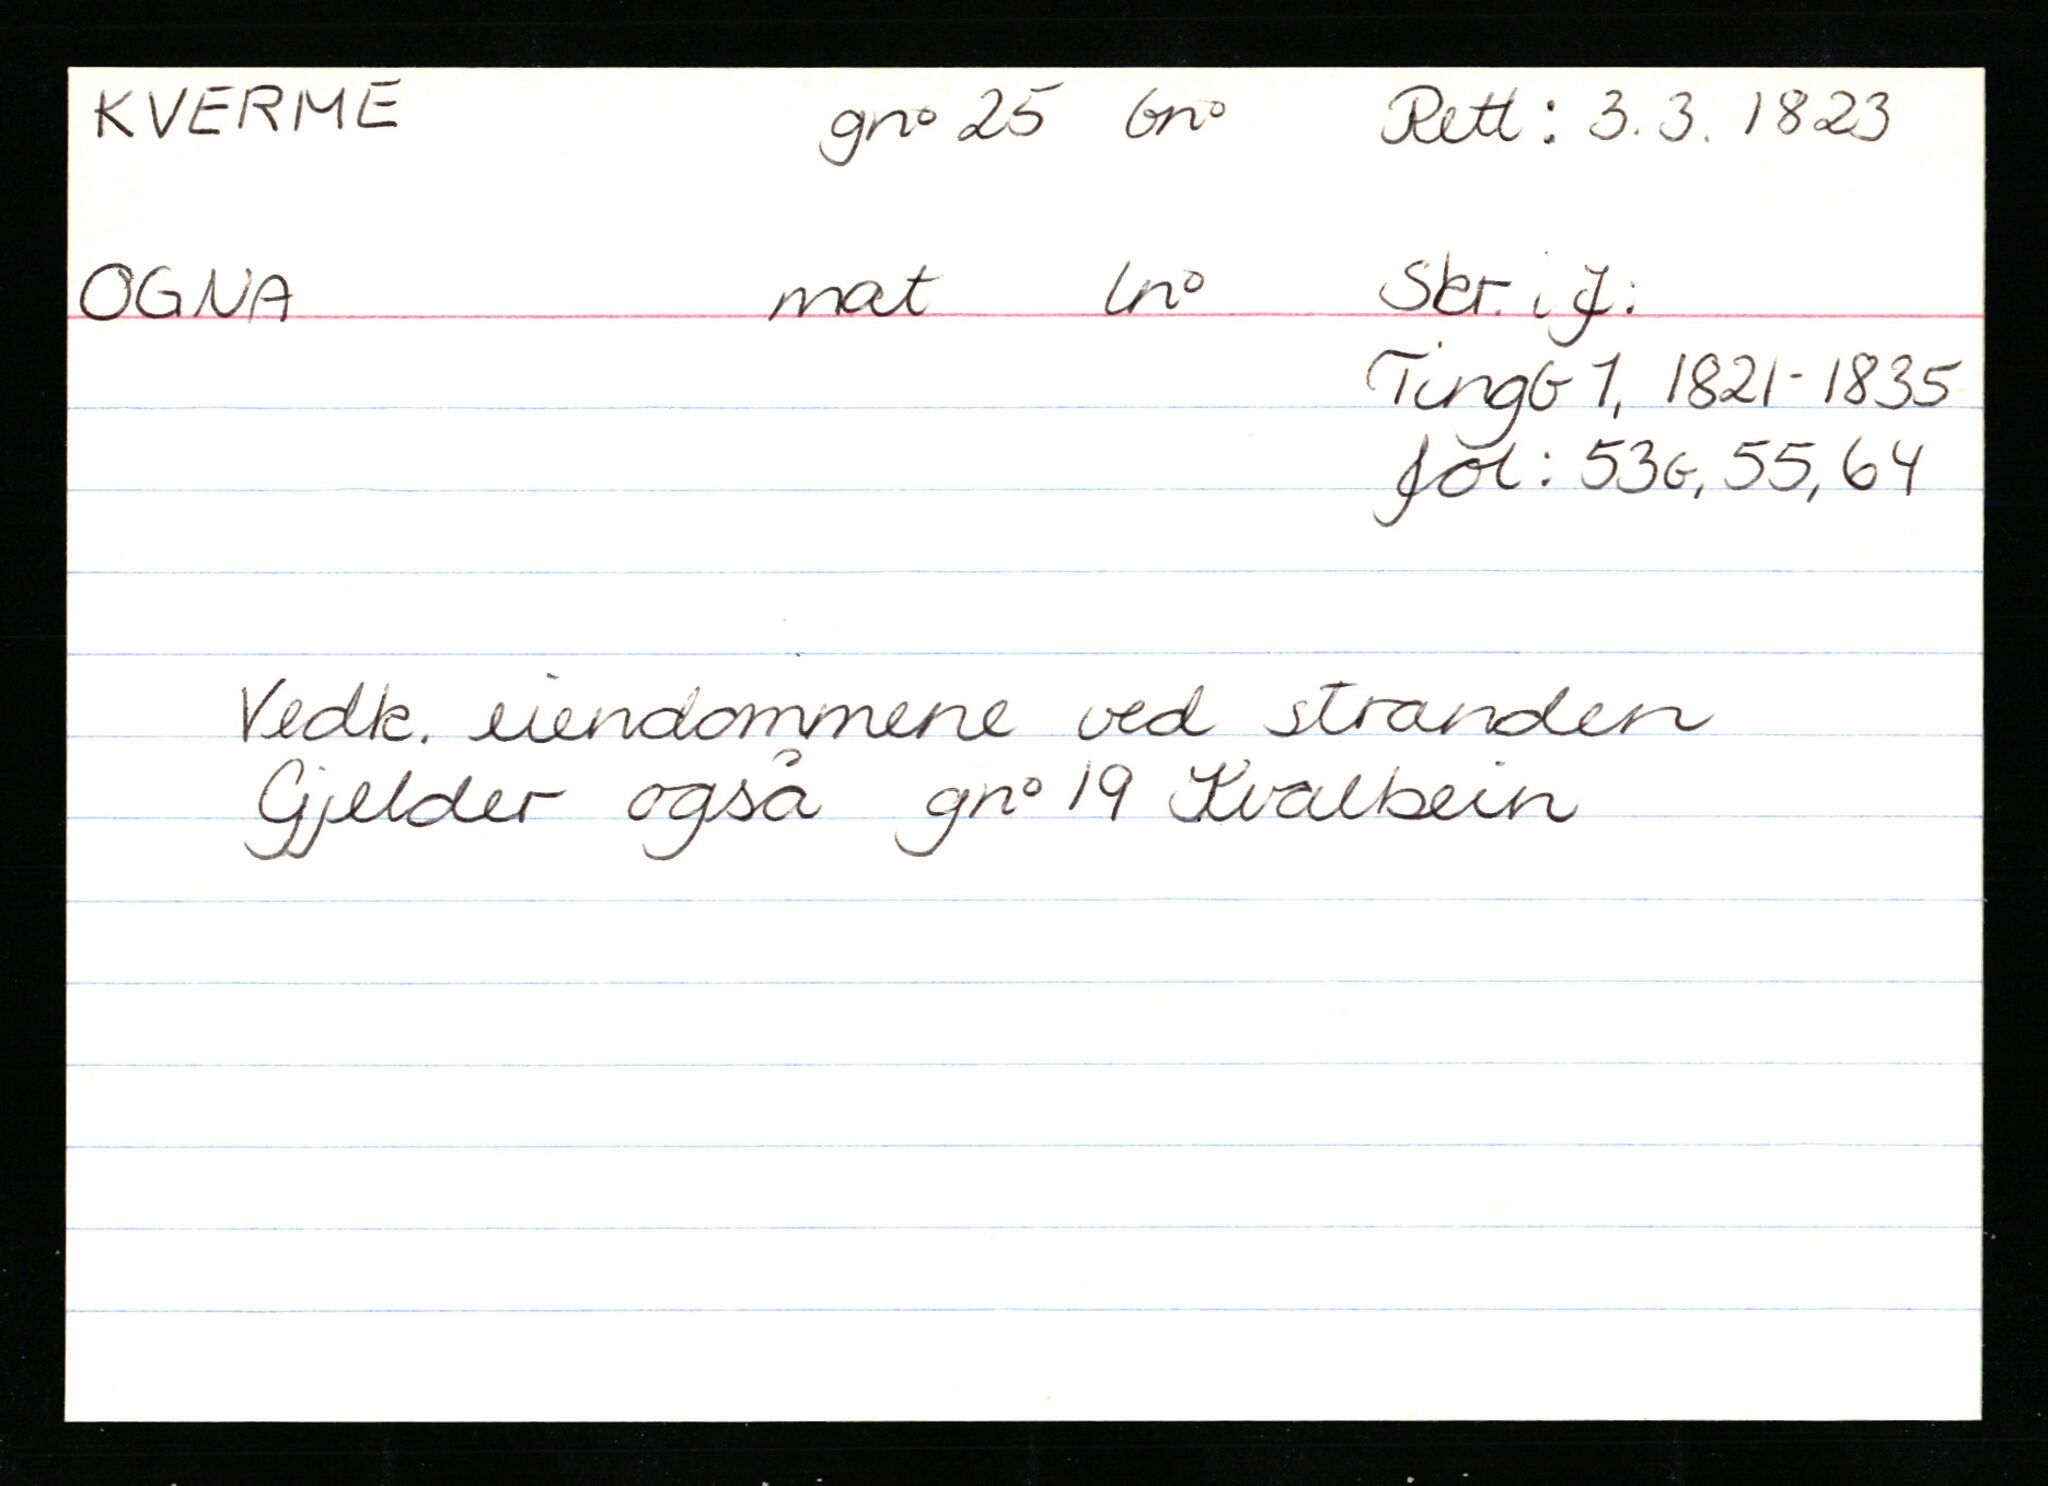 KVERME gno 25 bno Rett: 3.3. 1823
OGNA mat lno Skr. i J:
Tingb 1, 1821-1835
fol: 53b, 55, 64
Vedk. eiendommene ved stranden
Gjelder også gno 19 Kvalbein